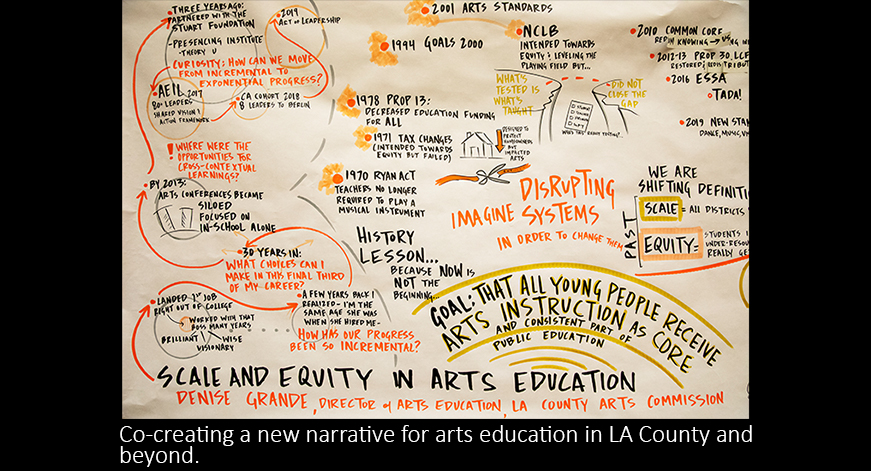 THREE YEARS AGO:
PARTNERED WITH THE
STUART FOUNDATION
-PRESENCING INSTITUTE
-THEORY U
CURIOSITY: HOW CAN WE MOVE
FROM INCREMENTAL TO
EXPONENTIAL PROGRESS?
2019
ACT of LEADERSHIP
AEIL 2017
80+ LEADERS
SHARED VISION &
ACTION FRAMEWORK
CA COHORT 2018
8 LEADERS TO BERLIN
! WHERE WERE THE
OPPORTUNITIES FOR
CROSS-CONTEXTUAL
LEARNING?
BY 2013:
ARTS CONFERENCES BECAME
SILOED
FOCUSED ON
IN-SCHOOL ALONE
30 YEARS IN:
WHAT CHOICES CAN I
MAKE IN THIS FINAL THIRD
OF MY CAREER?
LANDED 1ST JOB
RIGHT OUT OF COLLEGE
WORKED WITH THAT
BOSS MANY YEARS
BRILLIANT
WISE
VISIONARY
A FEW YEARS BACK I
REALIZED - I'M THE
SAME AGE SHE WAS
WHEN SHE HIRED ME-
HOW HAS OUR PROGRESS
BEEN SO INCREMENTAL?
2001 ARTS STANDARDS
1994 GOALS 2000
1978 PROP 13:
DECREASED EDUCATION FUNDING
FOR ALL
1971 TAX CHANGES
(INTENDED TOWARDS
EQUITY BUT FAILED)
DESIGNED TO
PROTECT
HOMEOWNERS
BUT
IMPACTED
ARTS
1970 RYAN ACT
TEACHERS NO LONGER
REQUIRED TO PLAY A
MUSICAL INSTRUMENT
HISTORY
LESSON...
BECAUSE NOW IS
NOT THE
BEGINNING...
NCLB
INTENDED TOWARDS
EQUITY & LEVELING THE
PLAYING FIELD BUT...
WHAT'S
TESTED IS
WHAT'S
TAUGHT
DID NOT
CLOSE THE
GAP
2010 COMMON CORE
2012-13 PROP 30, LCF
2016 ESSA
TADA!
2019 NEW STAN
DANCE, MUSIC, VI
DISRUPTING
IMAGINE SYSTEMS
IN ORDER TO CHANGE THEM
WE ARE
SHIFTING DEFINITI
PAST
SCALE = ALL DISTRICTS
EQUITY = STUDENTS I
UNDER-RESOU
REALLY GE
GOAL: THAT ALL YOUNG PEOPLE RECEIVE
ARTS INSTRUCTION AS CORE
AND CONSISTENT PART OF
PUBLIC EDUCATION
SCALE AND EQUITY IN ARTS EDUCATION
DENISE GRANDE, DIRECTOR of ARTS EDUCATION, LA COUNTY ARTS COMMISSION
Co-creating a new narrative for arts education in LA County and
beyond.